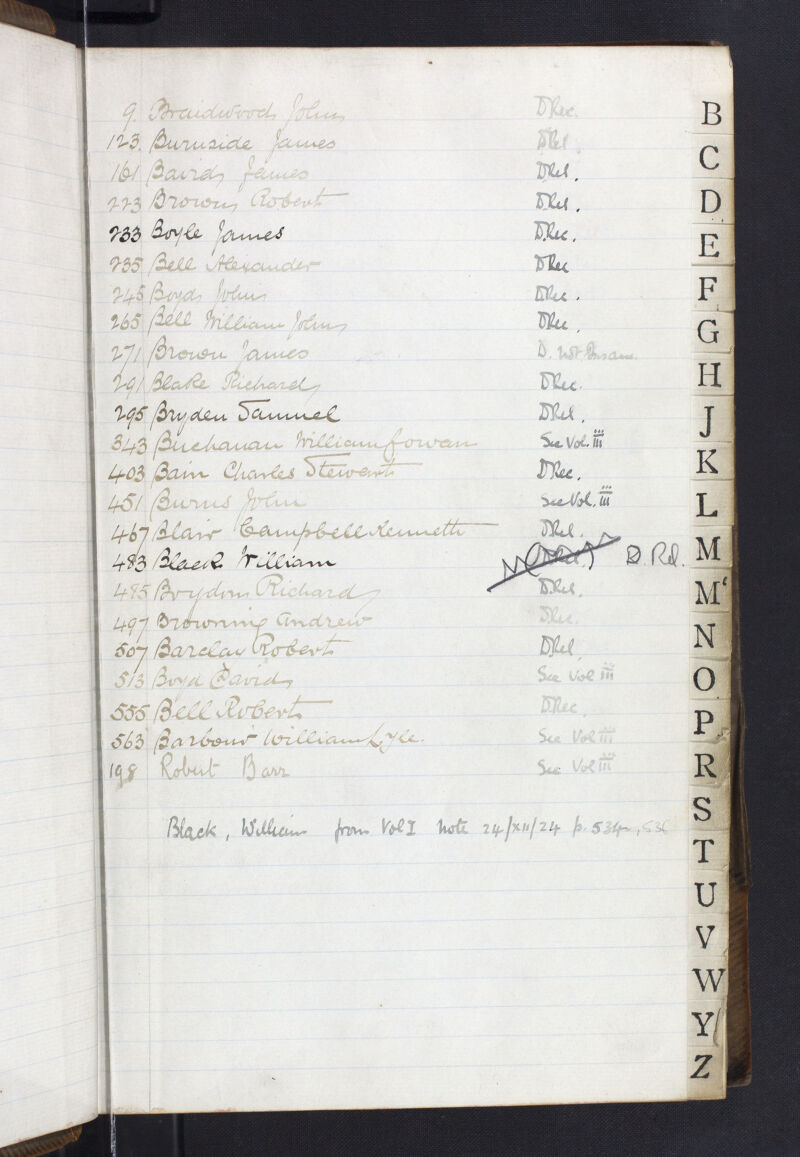 9 Braidwood John D Rec.
123 Burnside James D Rel
161 Baird James D Rel.
223 Brown Robert D Rel.
233 Boyle James D. Rec.
235 Bell Alexander D Rec
245 Boyd John D Rec.
265 Bell William John D Rec.
271 Brown James D. not Insane
291 Blake Richard D Rec.
295 Bryden Samuel D Rel.
343 Buchanan William Gowan See Vol. III
403 Bain Charles Stewart D Rec.
451 Burns John See Vol. III
467 Blair Campbell Kenneth D Rel.
483 Black William D. Rel.
485 Boydon Richard D. Rel.
497 Browning Andrew D Rec.
507 Barclay Robert D. Rel
513 Boyd David See Vol III
555 Bell Robert D Rec
563 Barbour William Lyle. See Vol III
198 Robert Barr See Vol III
Black, William from Vol I note 24/XII/24 p. 534
B
C
D
E
F
G
H
J
K
L
M
Mc
N
O
P
R
S
T
U
V
W
Y
Z